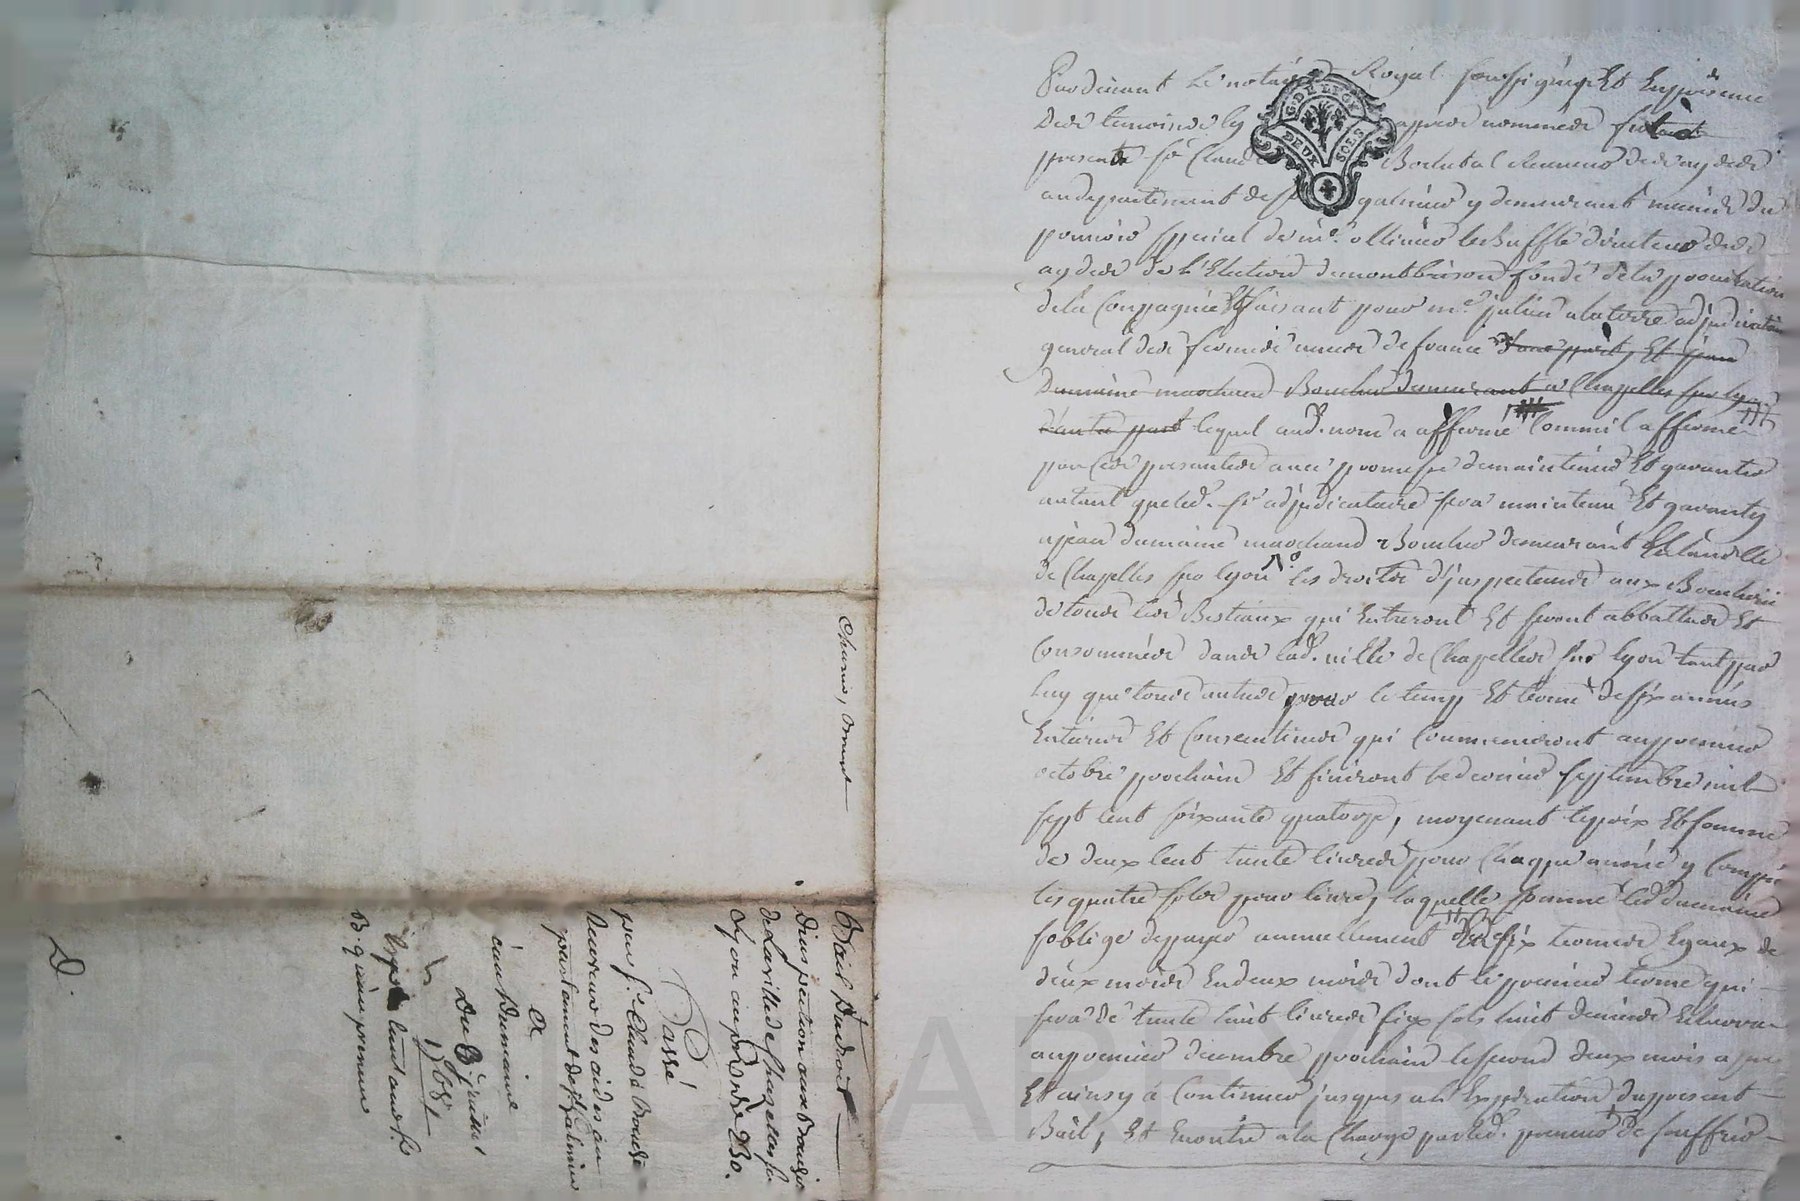 Pardevant Le notaire Royal soussigné Et En presence
des temoins cy apres nommés fut
present Sr Claude Boulutal Receveur des aydes
au departement de St galmier y demeurant muni du
pouvoir special de me. ollivier directeur des
aydes de L'Election de montbrison fondé de la procuration
de la Compagnie Et faisant pour me. julien alaterre adjudicataire
general des fermes unies de france d'une part, Et jean
Dumaine marchand Boucher demeurant a Chazelles sur lyon
d'autre part lequel aud. nom a affermé Comme il afferme
par Ces presentes avec promesse de maintenir Et garantir
autant que led. Sr adjudicataire sera maintenu Et garanty
a jean dumaine marchand Boucher demeurant En la ville
de Chazelles sur lyon les droits d'jnspecteurs aux Boucheries
de tous les Bestiaux qui Entreront Et seront abbattus Et
Consommés dans lad. ville de Chazelles sur lyon tant par
luy que tous autres pour le temp Et terme de six années
Entieres Et Consecutives qui Commenceront au premier
octobre prochain Et finiront le dernier septembre mil
sept cent soixante quatorze, moyenant le prix Et somme
de deux cent trente livres pour Chaque année y Compris
les quatre sols pour livre, laquelle somme led dumaine
s'oblige de payer annuellement En six termes Egaux de
deux mois En deux mois dont le premier terme qui
sera de trente huit livres six sols huit deniers Echerra
au premier decembre prochain le second deux mois apres
Et ainsy a Continuer jusques a l'Expiration du present
Bail, Et Encontre a la Charge par led. preneur de souffrir
G. DE LYON
DEUX SOLS
Bail du droit
d'inspection aux Boucheries
de La ville de Chazelles sur
Lyon au prix de 230.
Passé
par Sr. Claude
Receveur des aides au
departement de St galmier
A
jean Dumaine
Du 8 juin
1768
D.
CHAREYRON